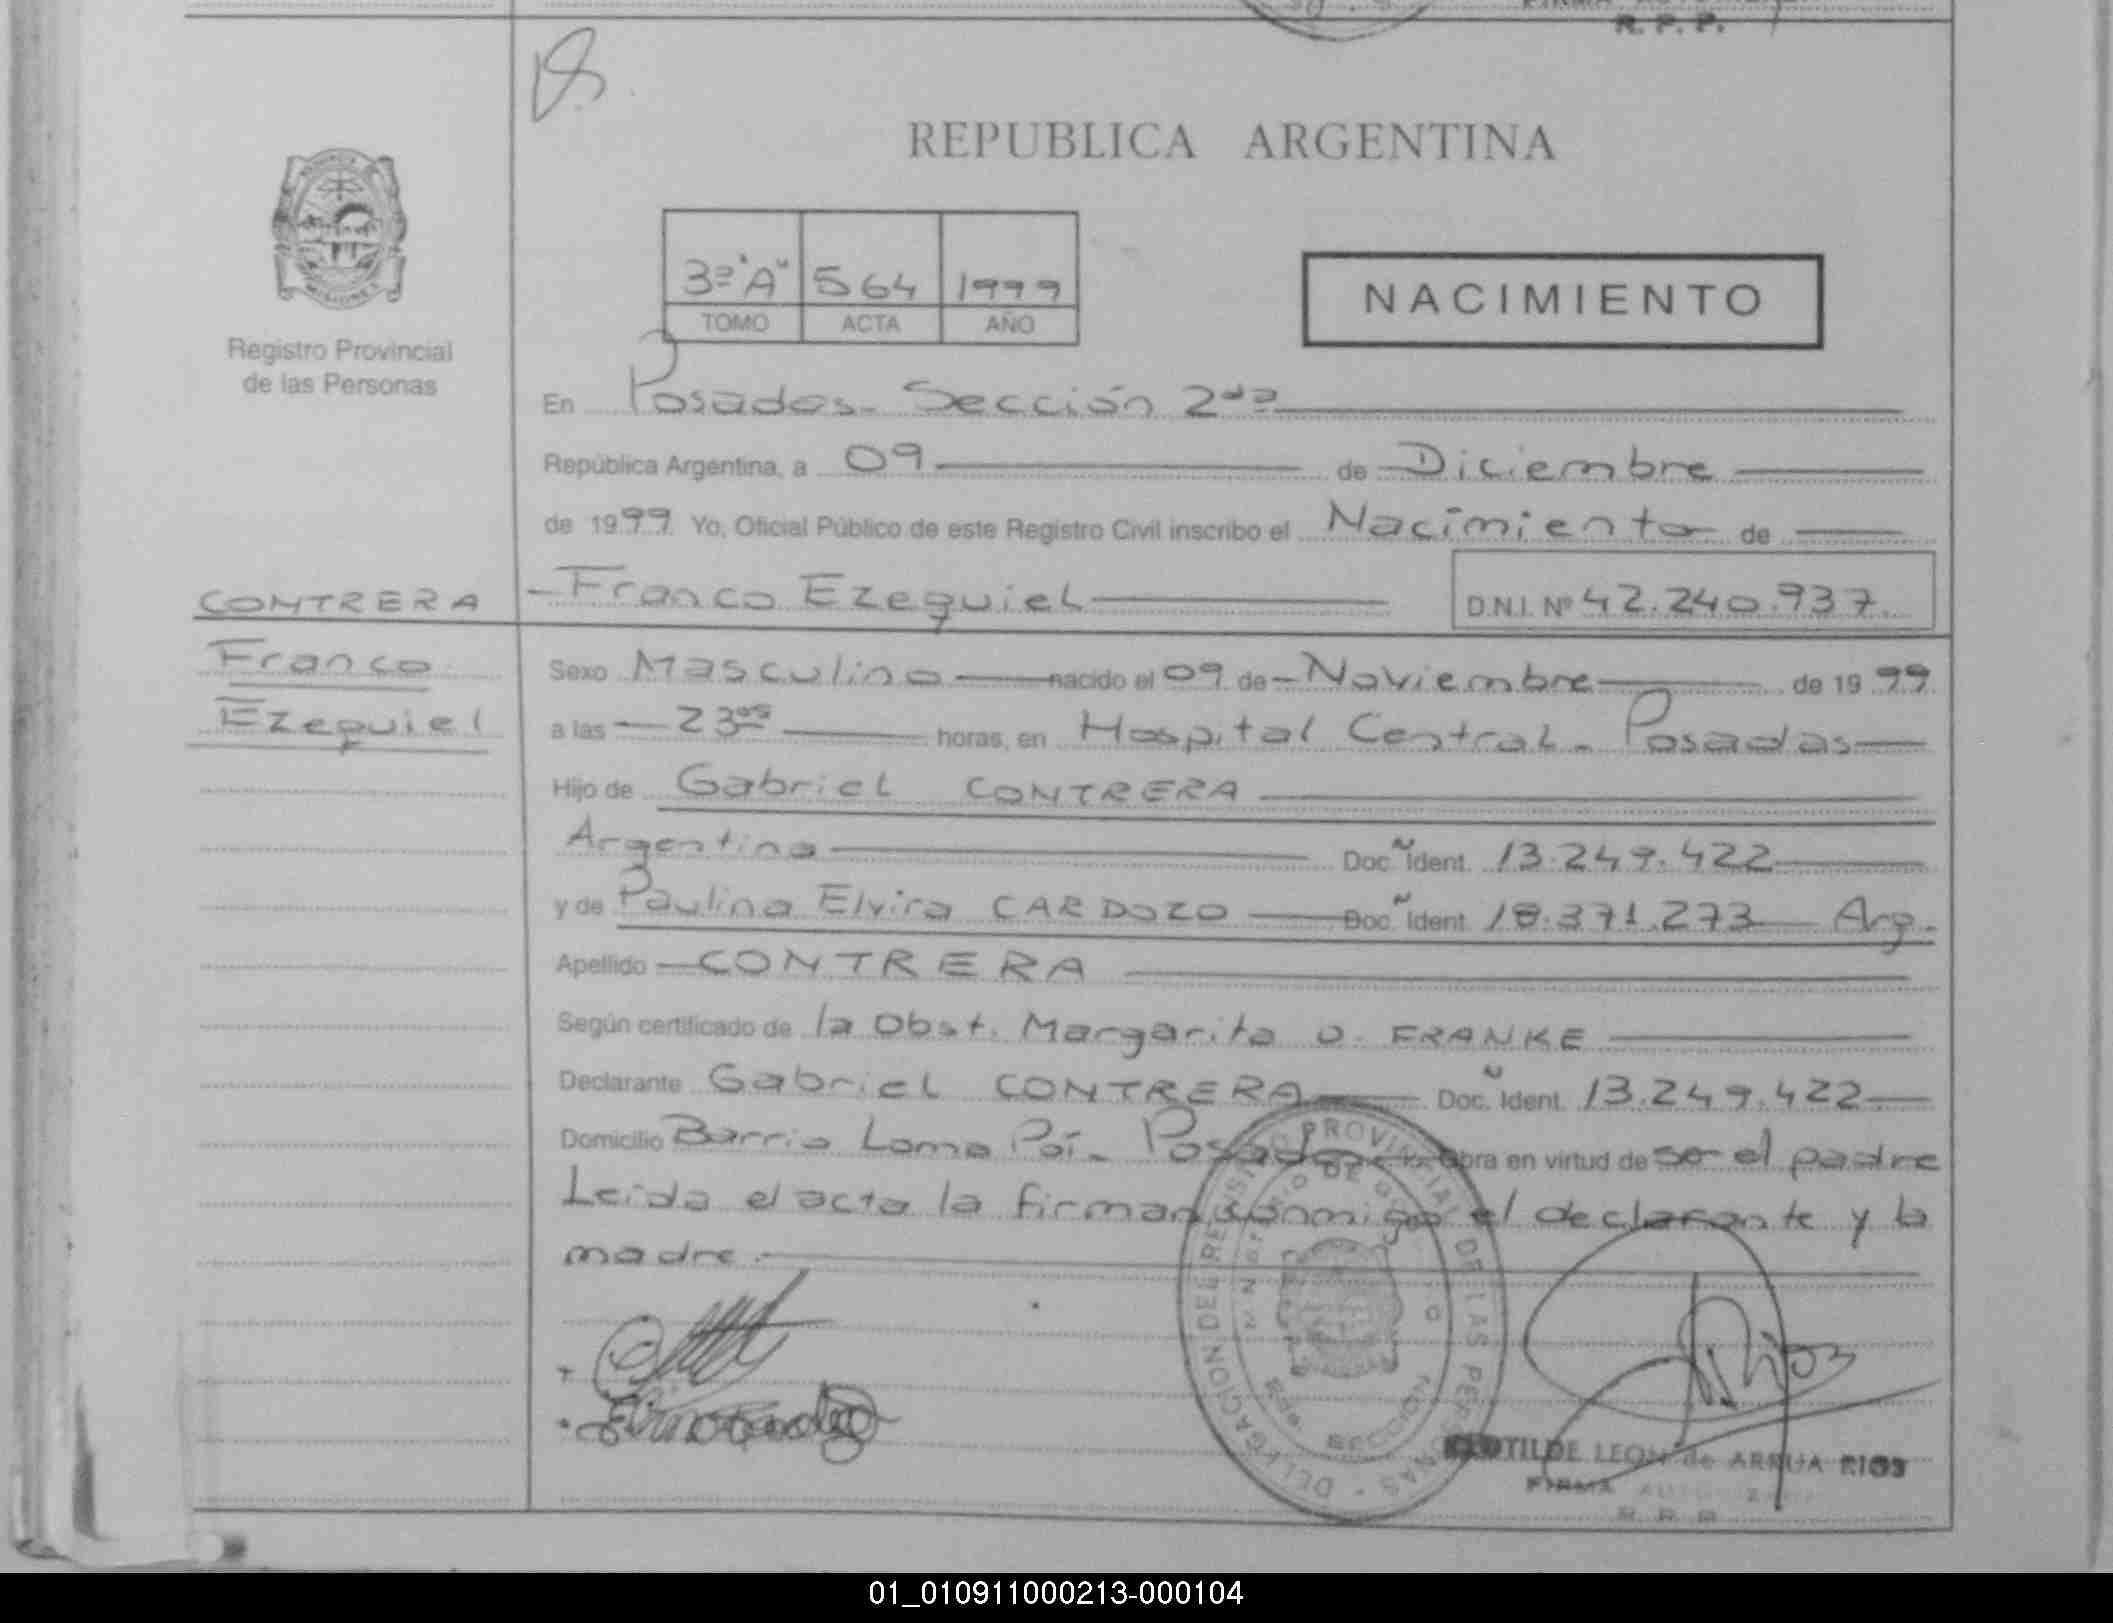 R. P. P.
REPUBLICA ARGENTINA
3ª "A" 564 1999
TOMO ACTA AÑO
NACIMIENTO
MISIONES
Registro Provincial
de las Personas
En Posadas - Sección 2da
República Argentina, a 09 de Diciembre
de 1999 Yo, Oficial Público de este Registro Civil inscribo el Nacimiento de
CONTRERA
Franco
Ezequiel
Franco Ezequiel D.N.I. Nº 42.240.937
Sexo Masculino nacido el 09 de Noviembre de 1999
a las 23 horas, en Hospital Central - Posadas
Hijo de Gabriel CONTRERA
Argentina Doc. Ident. 13.249.422
y de Paulina Elvira CARDOZO Doc. Ident. 18.371.273 Arg.
Apellido CONTRERA
Según certificado de la Obst. Margarita O. FRANKE
Declarante Gabriel CONTRERA Doc. Ident. 13.249.422
Domicilio Barrio Loma Poí - Posadas Obra en virtud de ser el padre
Leída el acta la firman conmigo el declarante y la
madre.
DELEGACION DEL REGISTRO PROVINCIAL DE LAS PERSONAS
MINISTERIO DE GOBIERNO
SECCION
CLOTILDE LEON de ARRUA RIOS
FIRMA AUTORIZADA
R. P. P.
01_010911000213-000104